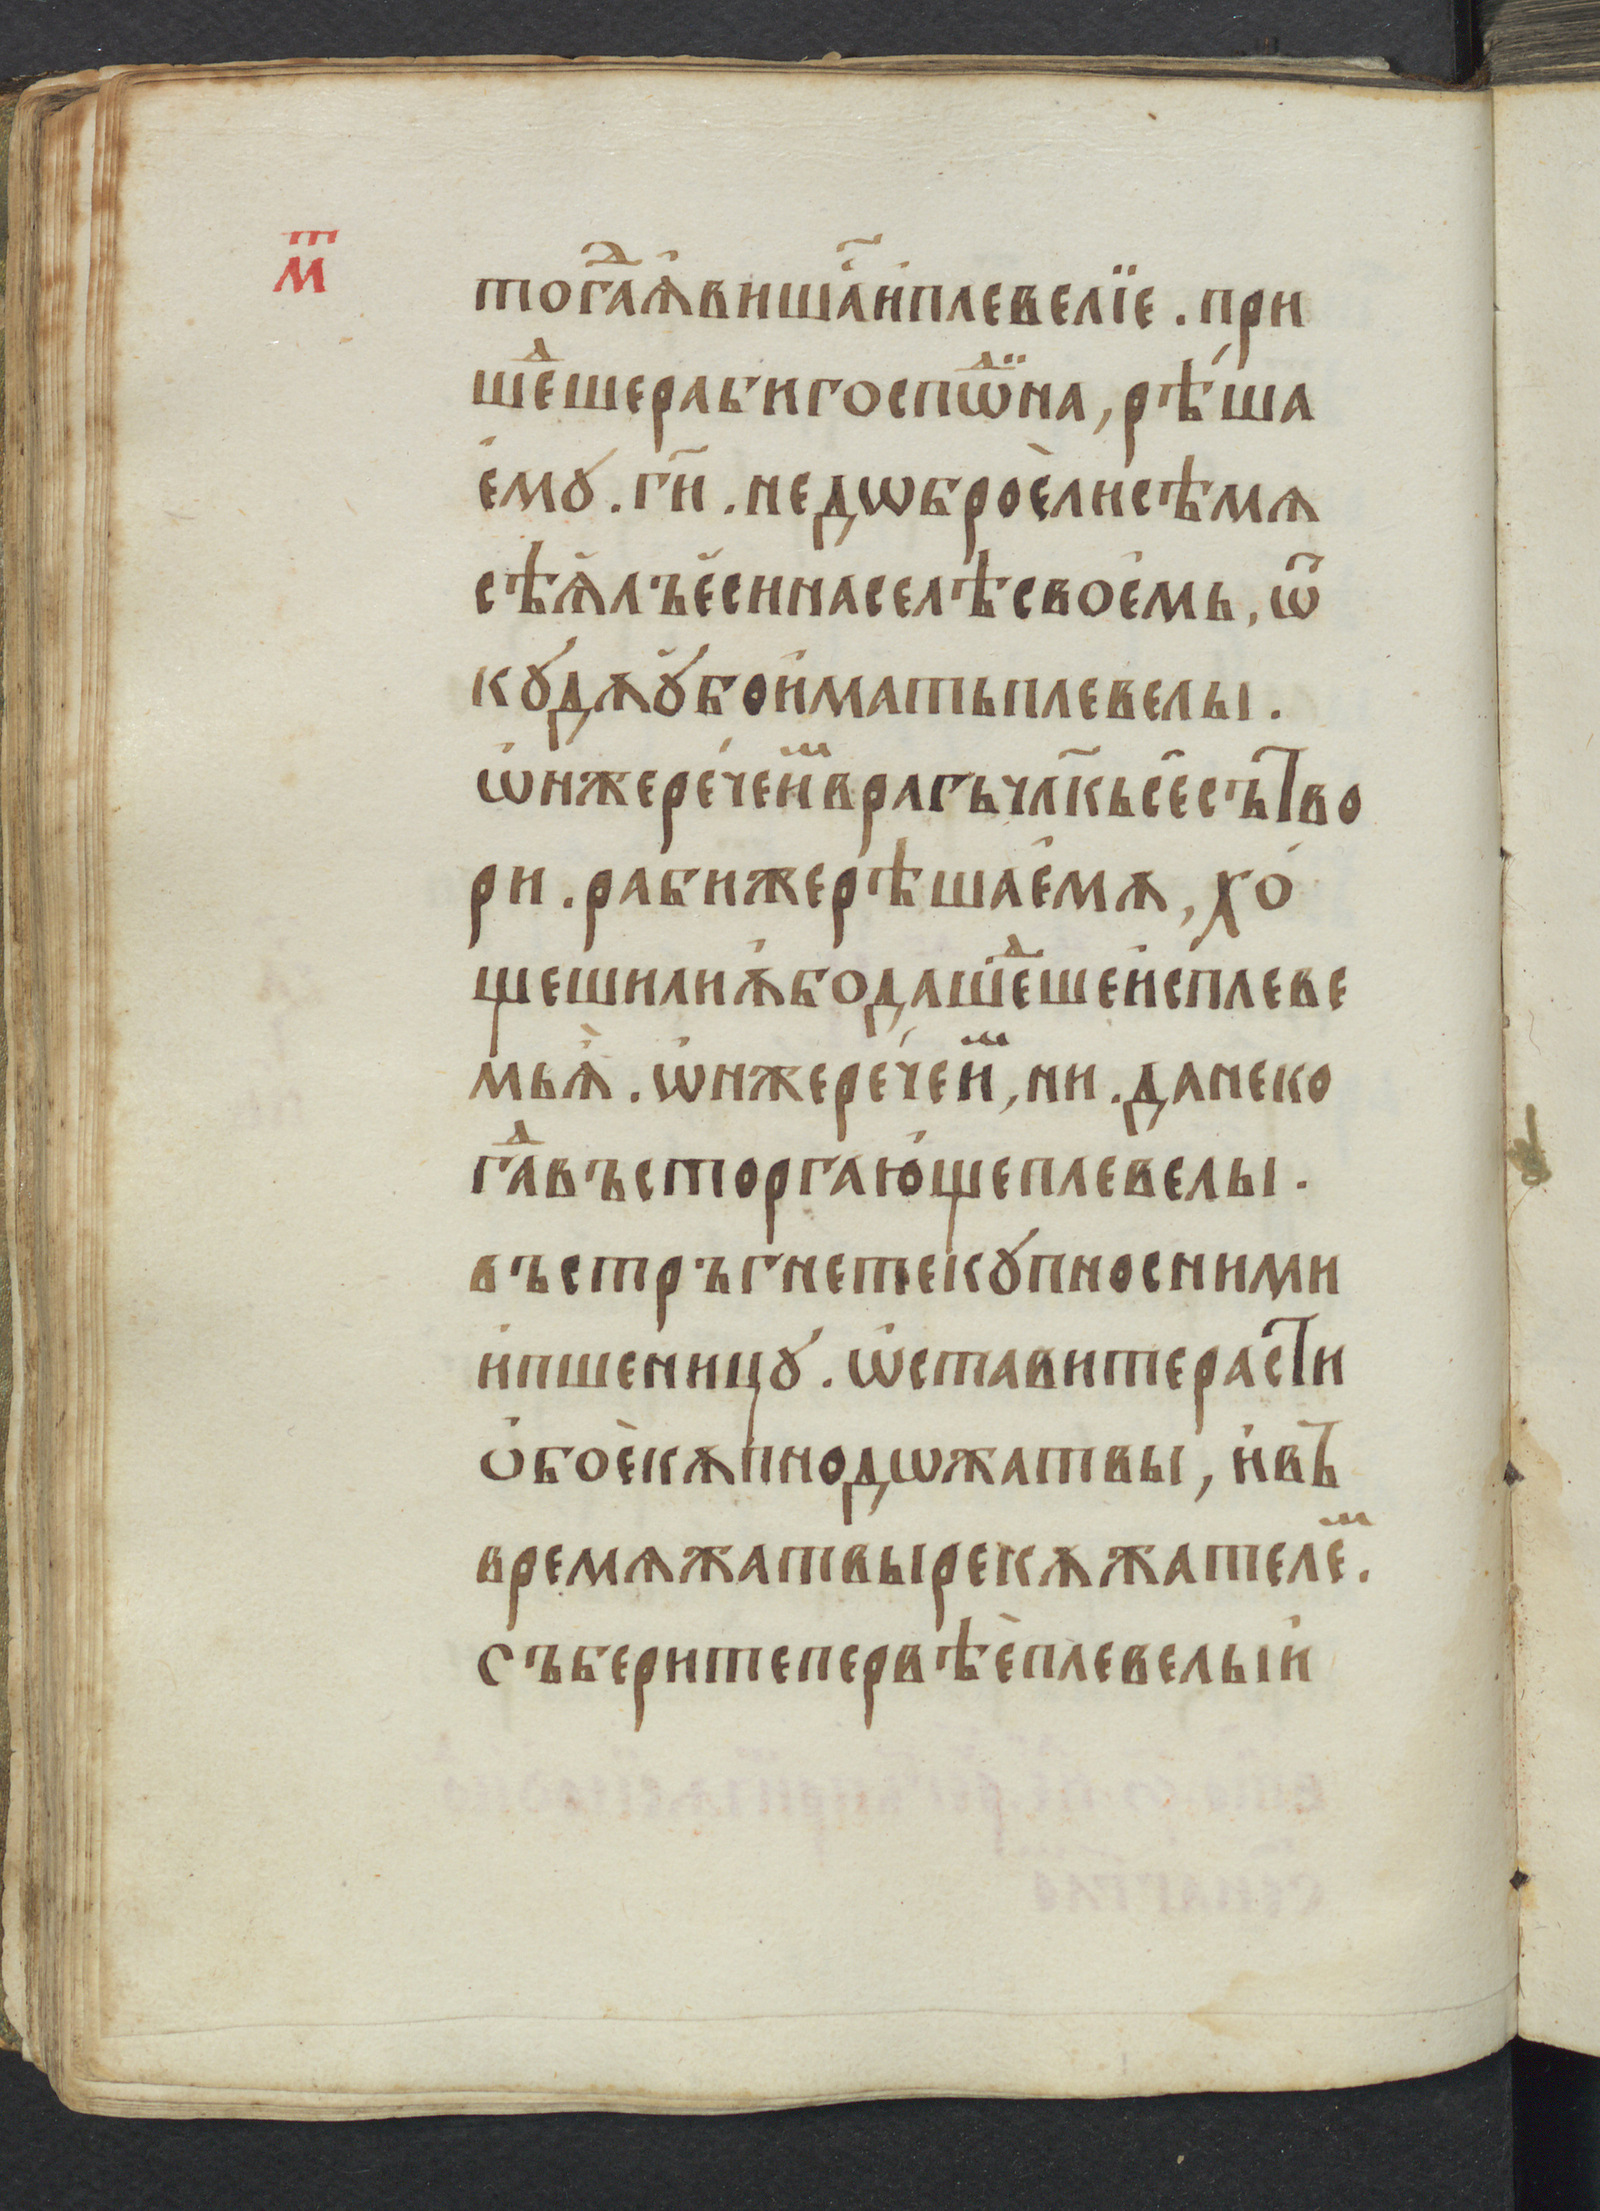 м҃т
тогⷣаꙗ́вишⷶа҃и҆плевелїе . при
шеⷣшерабигоспѡⷣи́на , рѣ́ша
е҆мꙋ . ги҃ . недѡброѐлисѣмѧ
сѣѧ҆лъе҆синаселѣсвое҆мь , ѿ
кꙋ́дѫꙋ҆́бои҆матьплевелы .
ѡ҆нжере́чеи҆ⷨврагьчл҃кьсе҆сътво
ри . рабижерѣшае҆мѫ , хо́
щешилиꙗ҆бодашеⷣшеи҆сплеве
мьѧ̀ . ѡ҆нжере́чеи҆ⷨ , ни . данеко
гⷣавъсторгаю҆щеплевелы .
въстръгнетекꙋпносними
и҆пшеницꙋ́ . ѡ҆ставитерасти
ѻ҆боѐкѫпнодѡжатвы , и҆въ
времѧжатвырекѫжателе҆ⷨ .
съберитепервѣѐплевелыи҆